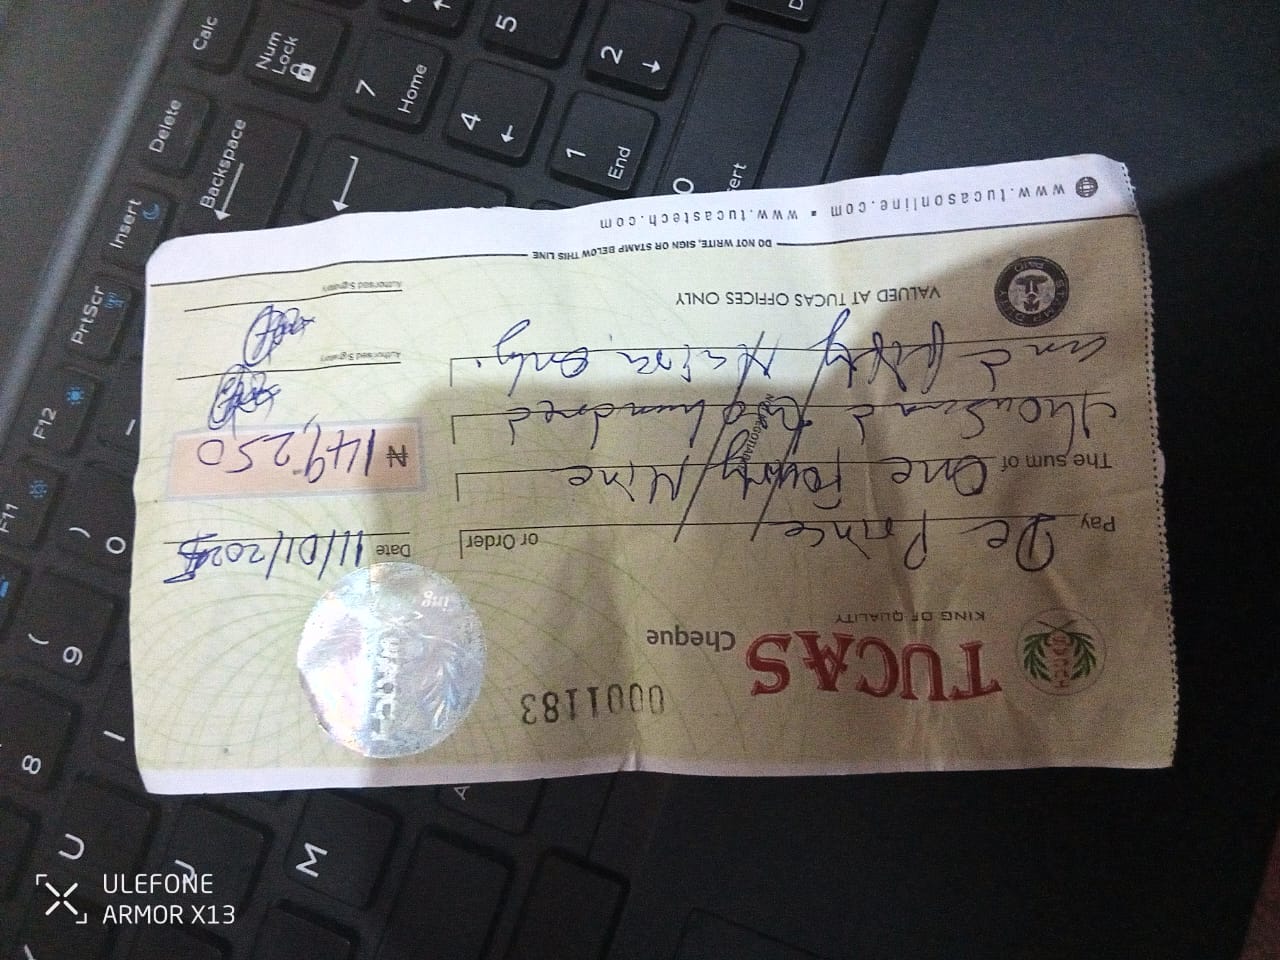 0001183
TUCAS Cheque
KING OF QUALITY
Pay De Prince or Order
Date 11/01/2025
The sum of One Fourty Nine
thousand two hundred
and fifty Naira Only.
₦ 149,250
Authorised Signatory
Authorised Signatory
VALUED AT TUCAS OFFICES ONLY
DO NOT WRITE, SIGN OR STAMP BELOW THIS LINE
www.tucasonline.com ▪ www.tucastech.com
Calc
Num Lock
7 Home
4
5
1 End
2
0
Delete
Backspace
Insert
PrtScr
F12
F11
)
0
(
9
8
I
U
J
M
ULEFONE
ARMOR X13